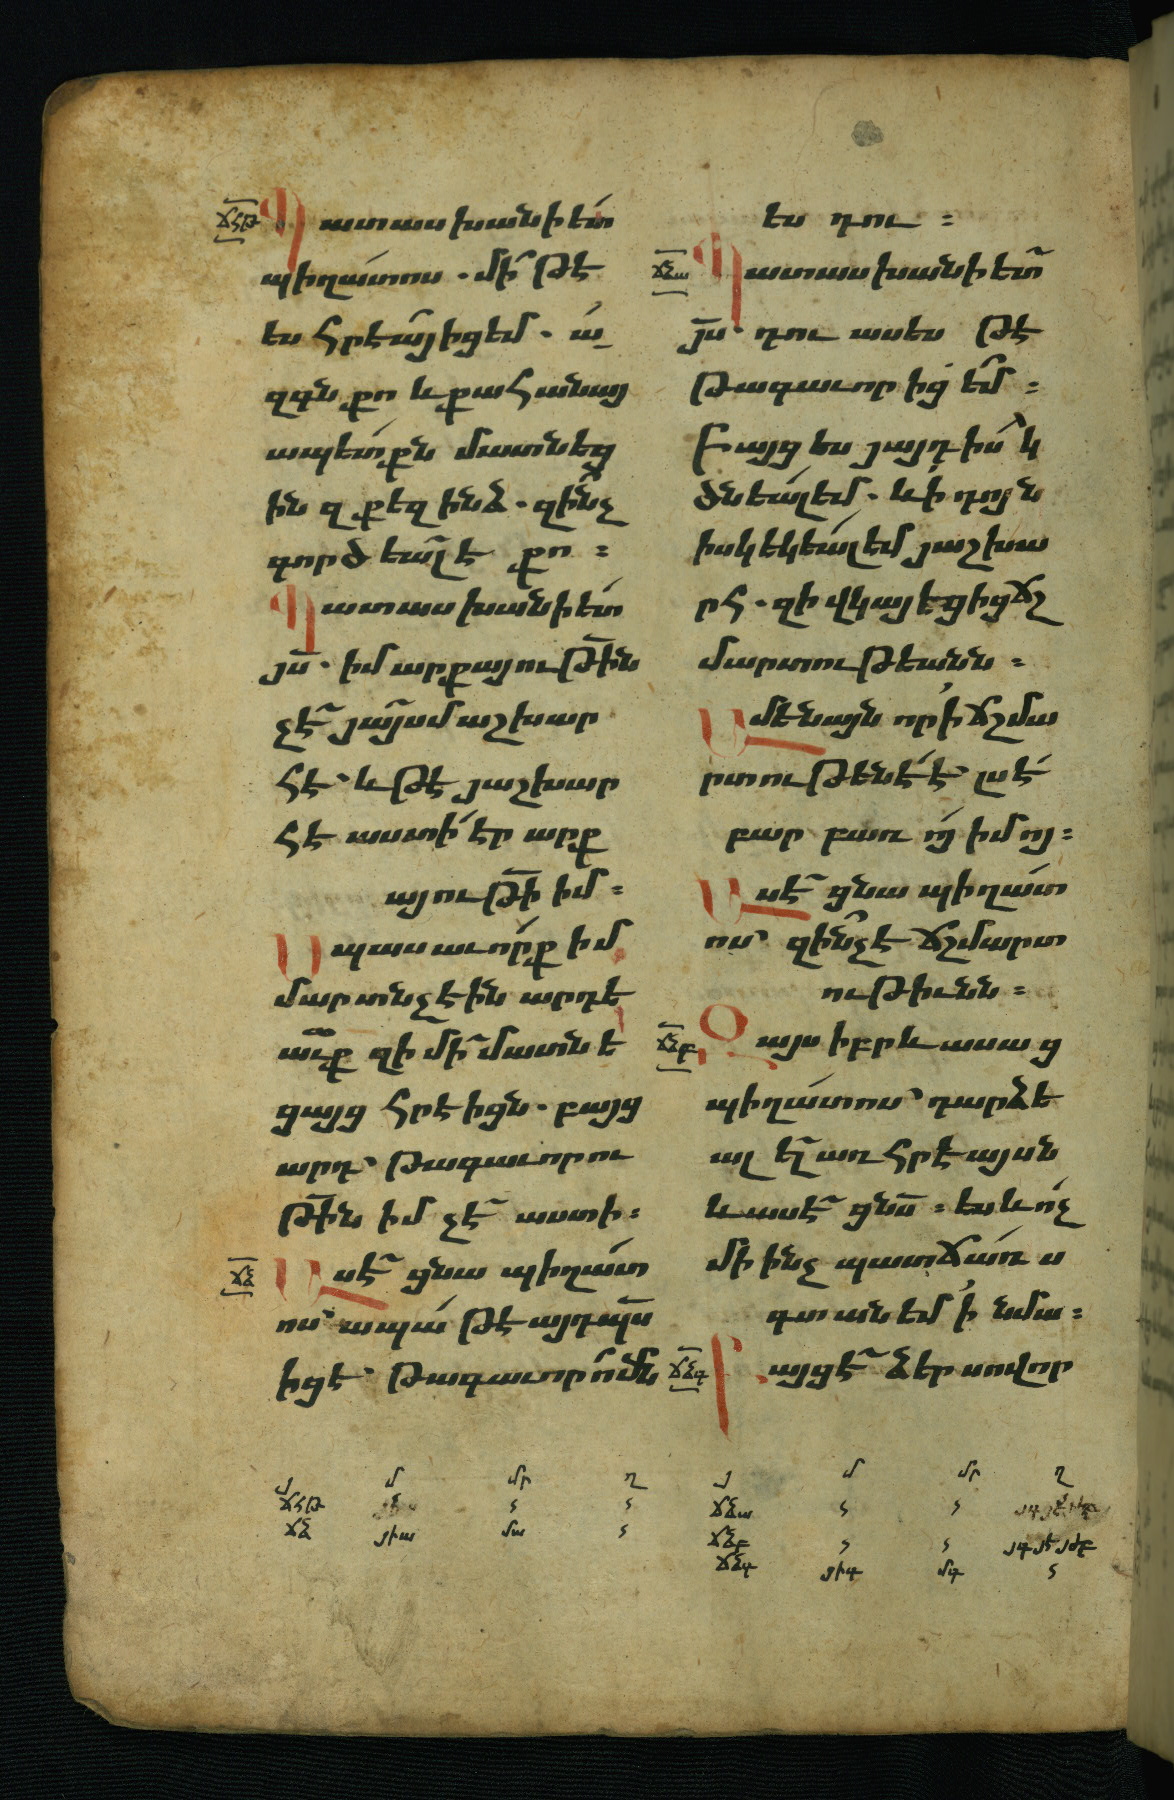 ՃՀԹ
Պատասխանի ետ
պիղատոս. մի՞ թէ
ես հրէա՞յ իցեմ. ա
զգն քո և քահանայ
ապետքն մատնեց
ին զքեզ ինձ. զի՞նչ
գործ եալ է քո։
Պատասխանի ետ
յս. իմ արքայութին
չէ՛ յայսմ աշխար
հէ՝ և թէ յաշխար
հէ աստի էր արք
այութի իմ։
Սպասաւորք իմ
մարտնչէին արդե
աւք զի մի՛ մատնե
ցայց հրէիցն. բայց
արդ՝ թագաւորու
թին իմ չէ՛ աստի։
ՃՁ
Ասէ՛ ցնա պիղատ
ոս՝ ապա թէ այդպս
իցէ՝ թագաւոր ոմն
ես դու։
ՃՁա
Պատասխանի ետ՛
յս՝ դու ասես թէ
թագաւոր իցեմ։
Բայց ես յայդ իսկ
ծնեալ եմ. և ի դոյն
իսկ եկեալ եմ յաշխա
րհ. զի վկայեցից ճշ
մարտութեանն։
Ամենայն որ ի ճշմա
րտութենէ է՝ լսէ
բարբառոյ իմոյ։
Ասէ՛ ցնա պիղատ
ոս՝ զի՞նչ է ճշմարտ
ութիւնն։
ՃՁբ
Զայս իբրև ասաց
պիղատոս՝ դարձե
ալ ել առ հրէայսն
և ասէ՛ ցնս։ ես և ոչ
մի ինչ պատճառ ս
գտանեմ ի նմա։
ՃՁգ
Բայց է՛ ձեր սովոր
յ մ մր ղ
ՃՀԹ
ՃՁ յիա մա
յ մ մր ղ
ՃՁա
ՃՁբ
ՃՁգ յիգ մգ